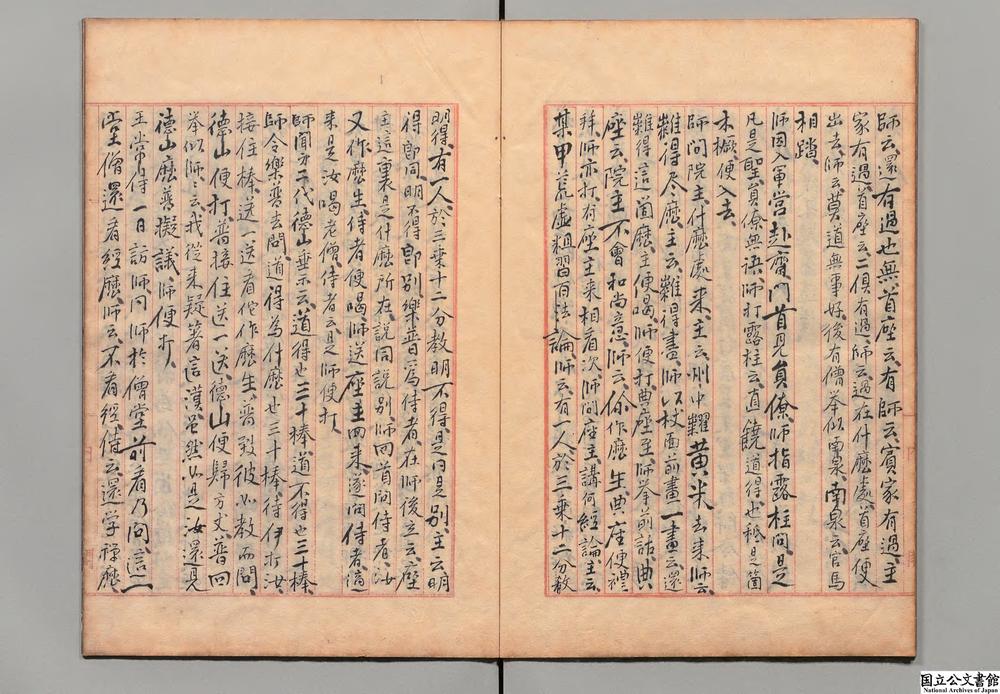 師云還有過也無首座云有師云賓家有過主
家有過首座云二俱有過師云過在什麼處首座便
出去師云莫道無事好後有僧舉似南泉南泉云官馬
相踏
師因入軍營赴齋門首見員僚師指露柱問是
凡是聖員僚無語師打露柱云直饒道得也秖是箇
木橛便入去
師問院主什麼處來主云州中糶黃米去來師云
糶得盡麼主云糶得盡師以杖面前畫一畫云還
糶得這箇麼主便喝師便打典座至師舉前話典
座云院主不會和尚意師云你作麼生典座便禮
拜師亦打有座主來相看次師問座主講何經論主云
某甲荒虛粗習百法論師云有一人於三乘十二分教
明得有一人於三乘十二分教明不得是同是別主云明
得即同明不得即別樂普為侍者在師後立云座
主這裏是什麼所在說同說別師回首問侍者汝
又作麼生侍者便喝師送座主回來遂問侍者適
來是汝喝老僧侍者云是師便打
師聞第二代德山垂示云道得也三十棒道不得也三十棒
師令樂普去問道得為什麼也三十棒待伊打汝
接住棒送一送看佗作麼生普到彼如教而問
德山便打普接住送一送德山便歸方丈普回
舉似師師云我從來疑著這漢雖然如是汝還見
德山麼普擬議師便打
王常侍一日訪師同師於僧堂前看乃問這一
堂僧還看經麼師云不看經侍云還學禪麼
国立公文書館
National Archives of Japan